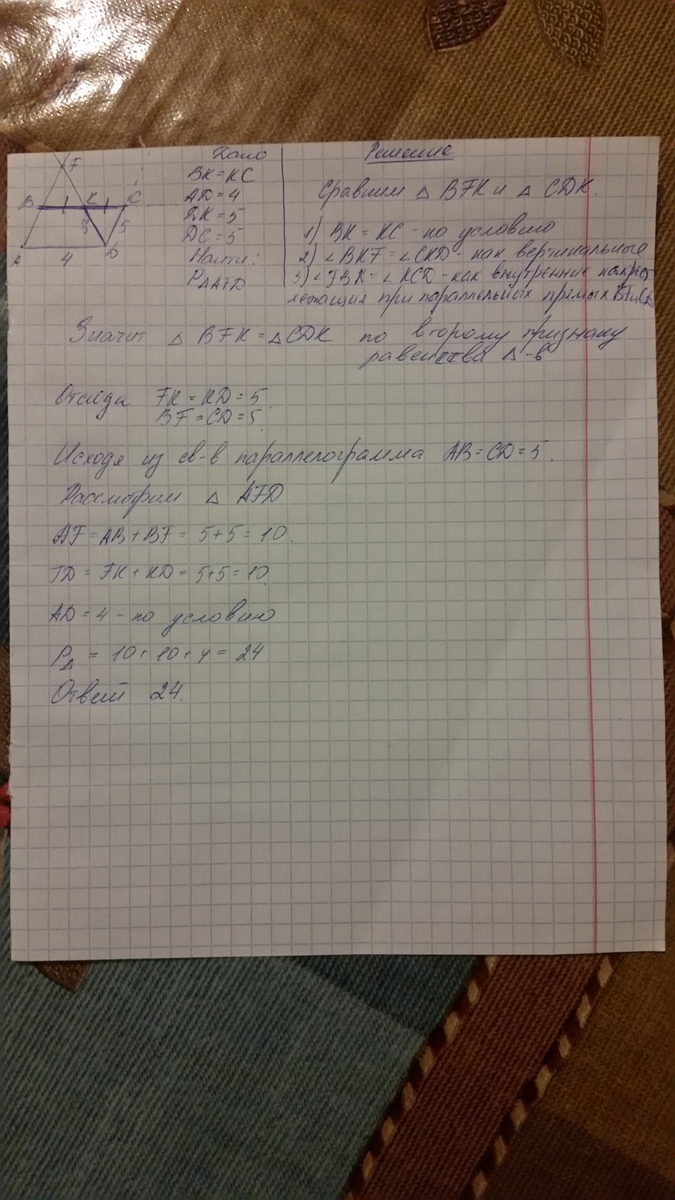 F
B K C
5 5
A 4 D
Дано
BK = KC
AD = 4
DK = 5
DC = 5
Найти:
P△AFD
Решение
Сравним △ BFK и △ CDK.
1) BK = KC - по условию
2) ∠BKF = ∠CKD - как вертикальные
3) ∠FBK = ∠KCD - как внутренние накрест
лежащие при параллельных прямых BF и CD
Значит △ BFK = △CDK по второму признаку
равенства △-в
Отсюда FK = KD = 5.
BF = CD = 5.
Исходя из св-в параллелограмма AB = CD = 5.
Рассмотрим △ AFD
AF = AB + BF = 5+5 = 10.
FD = FK + KD = 5+5 = 10.
AD = 4 - по условию
P△ = 10 + 10 + 4 = 24
Ответ 24.